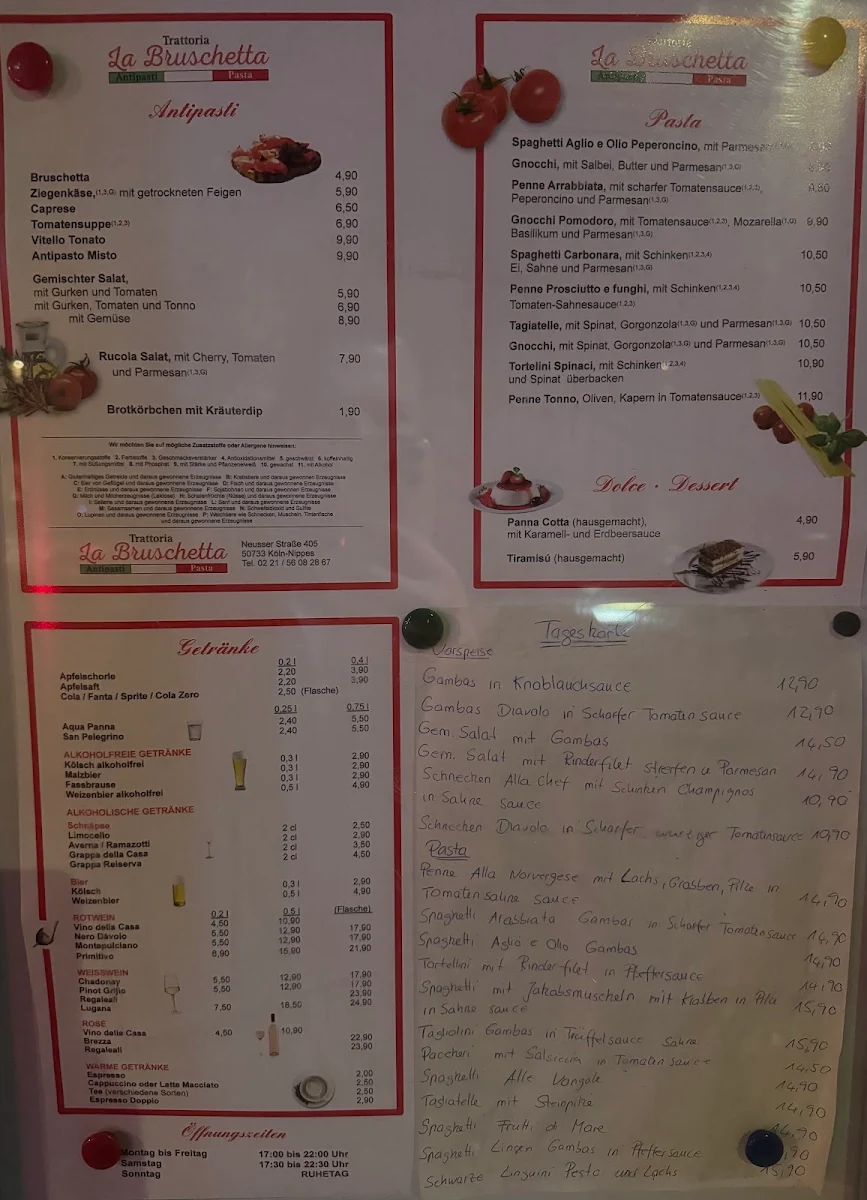 Trattoria
La Bruschetta
Antipasti Pasta
Antipasti
Bruschetta 4,90
Ziegenkäse,(1,3,G) mit getrockneten Feigen 5,90
Caprese 6,50
Tomatensuppe(1,2,3) 6,90
Vitello Tonato 9,90
Antipasto Misto 9,90
Gemischter Salat,
mit Gurken und Tomaten 5,90
mit Gurken, Tomaten und Tonno 6,90
mit Gemüse 8,90
Rucola Salat, mit Cherry, Tomaten 7,90
und Parmesan(1,3,G)
Brotkörbchen mit Kräuterdip 1,90
Wir möchten Sie auf mögliche Zusatzstoffe oder Allergene hinweisen:
1. Konservierungsstoffe 2. Farbstoffe 3. Geschmacksverstärker 4. Antioxidationsmittel 5. geschwärzt 6. koffeinhaltig
7. mit Süßungsmittel 8. mit Phosphat 9. mit Stärke und Pflanzeneiweiß 10. gewachst 11. mit Alkohol
A: Glutenhaltiges Getreide und daraus gewonnene Erzeugnisse B: Krebstiere und daraus gewonnen Erzeugnisse
C: Eier von Geflügel und daraus gewonnene Erzeugnisse D: Fisch und daraus gewonnene Erzeugnisse
E: Erdnüsse und daraus gewonnene Erzeugnisse F: Sojabohnen und daraus gewonnene Erzeugnisse
G: Milch und Milcherzeugnisse (Laktose) H: Schalenfrüchte (Nüsse) und daraus gewonnene Erzeugnisse
I: Sellerie und daraus gewonnene Erzeugnisse L: Senf und daraus gewonnene Erzeugnisse
M: Sesamsamen und daraus gewonnene Erzeugnisse N: Schwefeldioxid und Sulfite
O: Lupinen und daraus gewonnene Erzeugnisse P: Weichtiere wie Schnecken, Muscheln, Tintenfische
und daraus gewonnene Erzeugnisse
Trattoria
La Bruschetta
Antipasti Pasta
Neusser Straße 405
50733 Köln-Nippes
Tel. 02 21 / 56 08 28 67
Trattoria
La Bruschetta
Antipasti Pasta
Pasta
Spaghetti Aglio e Olio Peperoncino, mit Parmesan
Gnocchi, mit Salbei, Butter und Parmesan(1,3,G)
Penne Arrabbiata, mit scharfer Tomatensauce(1,2,3),
Peperoncino und Parmesan(1,3,G)
Gnocchi Pomodoro, mit Tomatensauce(1,2,3), Mozarella(1,G) 9,90
Basilikum und Parmesan(1,3,G)
Spaghetti Carbonara, mit Schinken(1,2,3,4) 10,50
Ei, Sahne und Parmesan(1,3,G)
Penne Prosciutto e funghi, mit Schinken(1,2,3,4) 10,50
Tomaten-Sahnesauce(1,2,3)
Tagiatelle, mit Spinat, Gorgonzola(1,3,G) und Parmesan(1,3,G) 10,50
Gnocchi, mit Spinat, Gorgonzola(1,3,G) und Parmesan(1,3,G) 10,50
Tortelini Spinaci, mit Schinken(1,2,3,4) 10,90
und Spinat überbacken
Penne Tonno, Oliven, Kapern in Tomatensauce(1,2,3) 11,90
Dolce · Dessert
Panna Cotta (hausgemacht), 4,90
mit Karamell- und Erdbeersauce
Tiramisú (hausgemacht) 5,90
Getränke
0,2 l 0,4 l
Apfelschorle 2,20 3,90
Apfelsaft 2,20 3,90
Cola / Fanta / Sprite / Cola Zero 2,50 (Flasche)
0,25 l 0,75 l
Aqua Panna 2,40 5,50
San Pelegrino 2,40 5,50
ALKOHOLFREIE GETRÄNKE
Kölsch alkoholfrei 0,3 l 2,90
Malzbier 0,3 l 2,90
Fassbrause 0,3 l 2,90
Weizenbier alkoholfrei 0,5 l 4,90
ALKOHOLISCHE GETRÄNKE
Schnäpse
Limocello 2 cl 2,50
Averna / Ramazotti 2 cl 2,90
Grappa della Casa 2 cl 3,50
Grappa Reiserva 2 cl 4,50
Bier
Kölsch 0,3 l 2,90
Weizenbier 0,5 l 4,90
ROTWEIN 0,2 l 0,5 l (Flasche)
Vino della Casa 4,50 10,90
Nero Dávolo 5,50 12,90 17,90
Montepulciano 5,50 12,90 17,90
Primitivo 6,90 15,90 21,90
WEISSWEIN
Chadonay 5,50 12,90 17,90
Pinot Grijio 5,50 12,90 17,90
Regaleali 23,90
Lugana 7,50 18,50 24,90
ROSE
Vino della Casa 4,50 10,90
Brezza 22,90
Regaleali 23,90
WARME GETRÄNKE
Espresso 2,00
Cappuccino oder Latte Macciato 2,50
Tee (verschiedene Sorten) 2,50
Espresso Doppio 2,90
Öffnungszeiten
Montag bis Freitag 17:00 bis 22:00 Uhr
Samstag 17:30 bis 22:30 Uhr
Sonntag RUHETAG
Tageskarte
Vorspeise
Gambas in Knoblauchsauce 12,90
Gambas Diavolo in Scharfer Tomaten sauce 12,90
Gem. Salat mit Gambas 14,50
Gem. Salat mit Rinderfilet streifen u Parmesan 14,90
Schnecken Alla Chef mit Schinken Champignos
in Sahne sauce 10,90
Schnecken Diavolo in Scharfer wurziger Tomatensauce 10,90
Pasta
Penne Alla Norvergese mit Lachs, Grasben, Pilze in
Tomatensahne sauce 14,90
Spaghetti Arabbiata Gambas in Scharfer Tomatensauce 14,90
Spaghetti Aglio e Olio Gambas 14,90
Tortellini mit Rinderfilet in Pfeffersauce 14,90
Spaghetti mit Jakobsmuscheln mit Krasben in Pilz
in Sahne sauce 15,90
Tagliolini Gambas in Trüffelsauce Sahne 15,90
Paccheri mit Salsiccia in Tomaten sauce 14,50
Spaghetti Alle Vongole 14,90
Tagliatelle mit Steinpilze 14,90
Spaghetti Frutti di Mare 14,90
Spaghetti Lingen Gambas in Pfeffersauce
Schwarze Linguini Pesto und Lachs 15,90